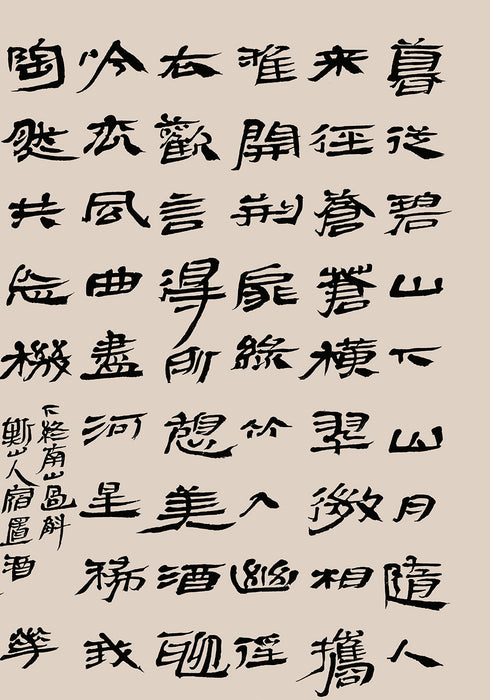 暮從碧山下山月隨人
来徑蒼蒼橫翠微相攜
稚開荊扉綠竹入幽徑
衣歡言得所憩美酒聊
吟松風曲盡河星稀我
陶然共忘機
下終南山過斛
斯山人宿置酒
華